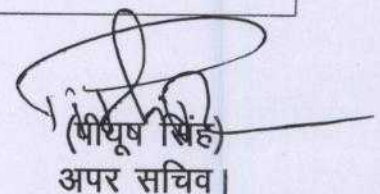 (पीयूष सिंह)
अपर सचिव।